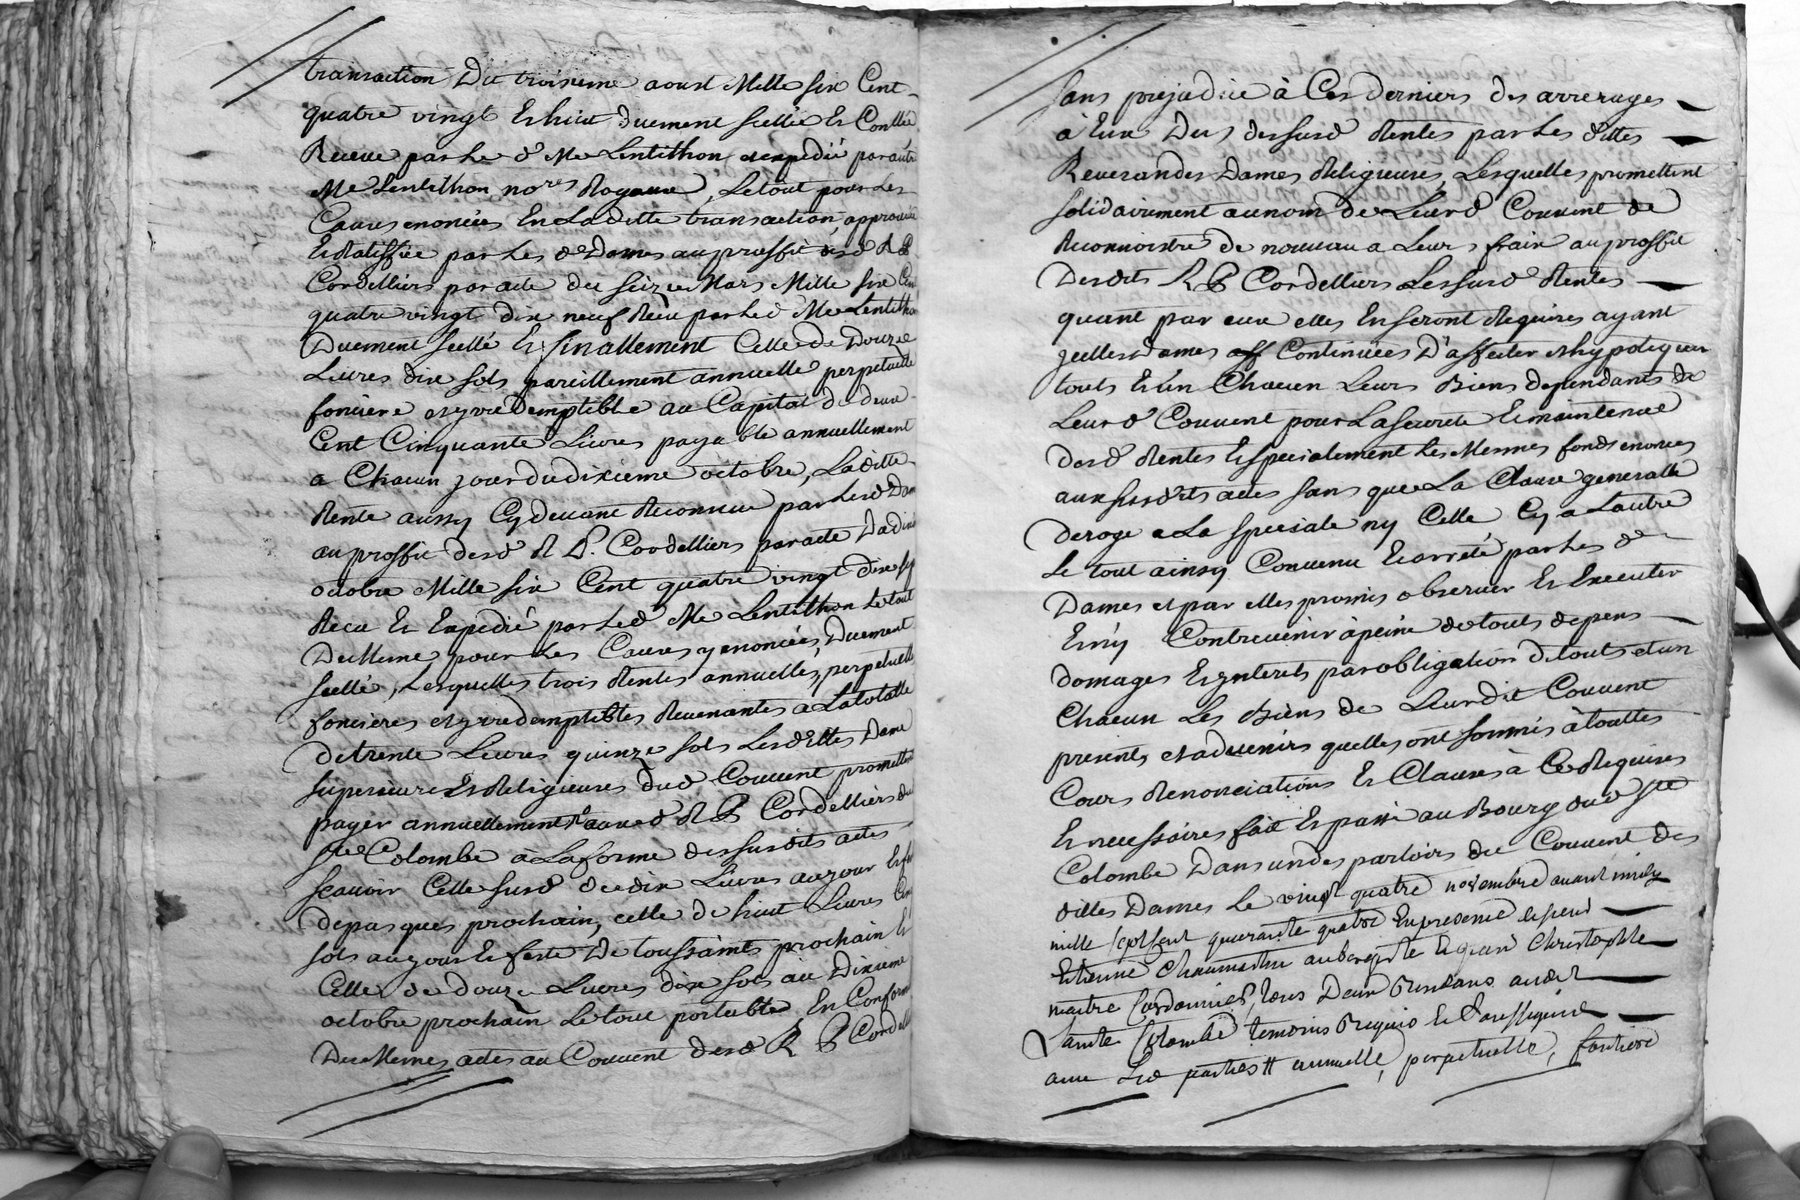 transaction Du troisieme aoust Mille six Cent
quatre vingt Et huit duement scellée Et Conllée
Receue par Le d Me Lentithon et expedié par autre
Me Lentithon nores Royaux, Le tout pour Les
Causes enoncées En La ditte transaction, approuvée
Et Ratiffiée par Les d Dames au proffit desd R P
Cordelliers par acte du seize Mars Mille six Cent
quatre vingt dix neuf Receu par Led Me Lentithon
Duement scellé Et finallement Celle de Douze
Livres dix sols pareillement annuelle perpetuelle
fonciere et yrredemptible au Capital de deux
Cent Cinquante Livres payable annuellement
a Chacun jour du dixieme octobre, La ditte
Rente aussy Cy devant Reconnue par Lesd Dames
au proffit desd R P. Cordelliers par acte Du dix
octobre Mille six Cent quatre vingt dix sept
Receu Et Expedié par Led Me Lentithon Le tout
De Meme pour Les Causes y enoncées, Duement
scellé, Lesquelles trois Rentes annuelles, perpetuelles
foncieres et yrredemptibles Revenantes a La totalle
de trente Livres quinze sols Lesdittes Dame
superieure Et Religieuses dud Couvent promettent
payer annuellement auxd R P Cordelliers de
Ste Colombe à La forme des susdits actes
scavoir Celle susd de dix Livres au jour Et feste
de pasques prochain, celle de huit Livres Cinq
sols au jour Et feste De toussaints prochain Et
Celle de douze Livres dix sols au Dixieme
octobre prochain Le tout portable En Conformité
Des Memes actes au Couvent desd R P Cordelliers
sans prejudice à Ces derniers des arrerages
à Eux Deus des susd Rentes par Les dittes
Reverandes Dames Religieuses, Lesquelles promettent
solidairement au nom de Leurd Couvent de
Reconnoistre de nouveau a Leurs frais au proffit
Desdits R P Cordelliers Les susd Rentes
quant par eux elles En seront Requises ayant
jcelles Dames Continuées D'affecter et hypotequer
touts Et Un Chacun Leurs Biens dependants de
Leurd Couvent pour La seureté Et maintenue
desd Rentes Et specialement Les Memes fonds enoncés
aux susdits actes sans que La Clause generalle
deroge a La speciale ny Celle Cy a L'autre
Le tout ainsy Convenu Et arreté par Les d
Dames et par elles promis observer Et Executer
Et n'y Contrevenir à peine de touts depens
domages Et ynterets par obligation de touts et un
Chacun Les Biens de Leurdit Couvent
presents et advenirs quelles ont soumis à touttes
Cours Renonciations Et Clauses à Ce Requises
Et necessaires fait Et passé au Bourg dud Ste
Colombe Dans un des parloirs du Couvent des
dittes Dames Le vingt quatre novembre avant midy
mille sept cent quarante quatre En presence de sieur
Etienne Chaumartin aubergiste Et sieur Christophle
maitre Cordonnier, tous Deux Residans audit
Sainte Colombe temoins Requis Et Soussignés
avec Les parties # annuelle, perpetuelle, fonciere